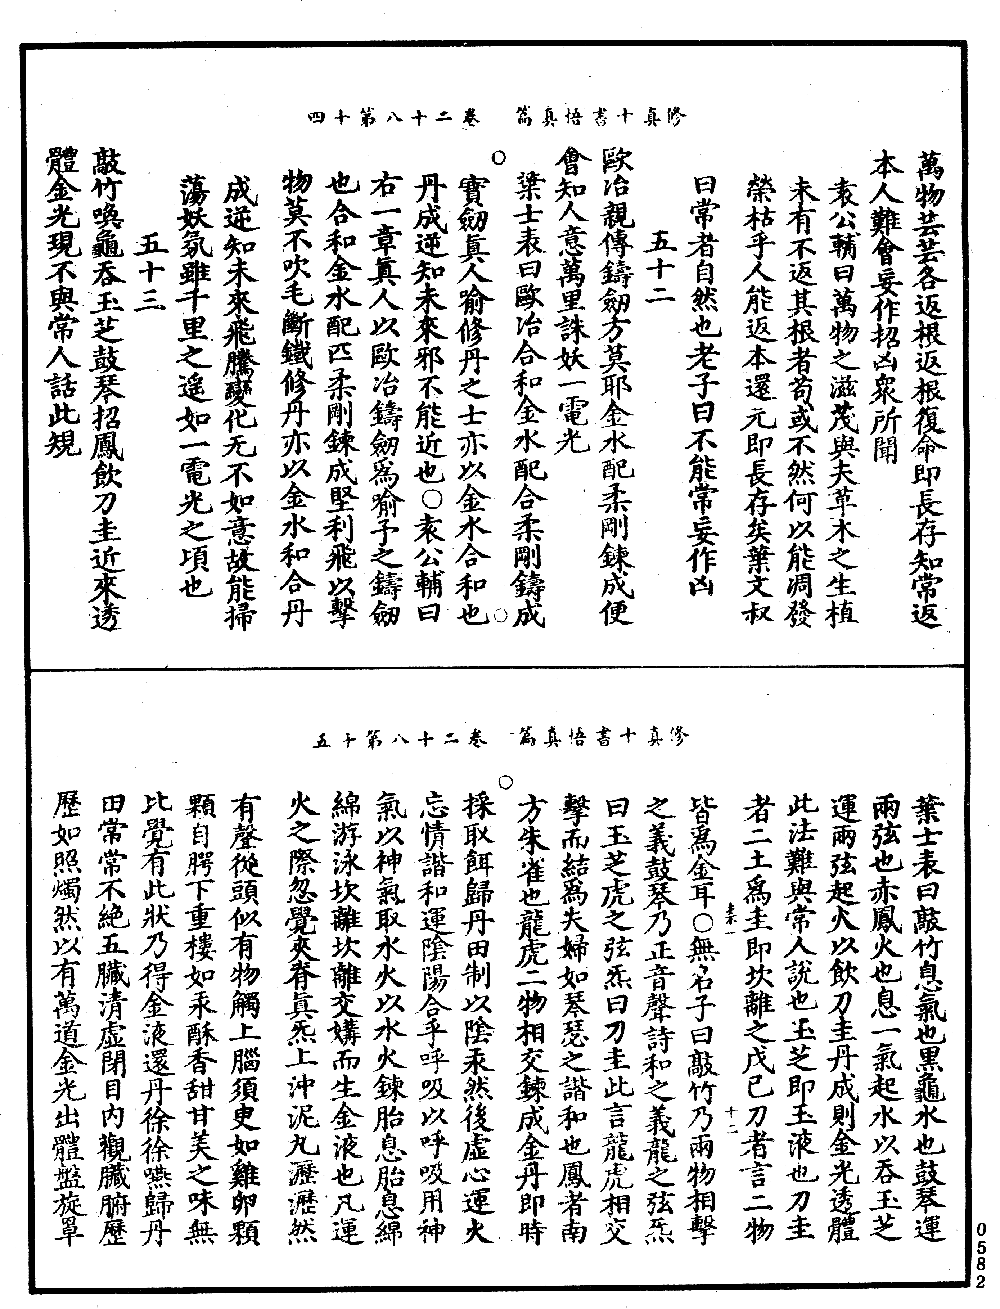 修真十書悟真篇　卷二十八第十四
萬物芸芸各返根返根復命即長存知常返
本人難會妄作招凶衆所聞
袁公輔曰萬物之滋茂與夫草木之生植
未有不返其根者苟或不然何以能凋發
榮枯乎人能返本還元即長存矣葉文叔
曰常者自然也老子曰不能常妄作凶
五十二
歐冶親傳鑄劒方莫耶金水配柔剛鍊成便
會知人意萬里誅妖一電光
葉士表曰歐冶合和金水配合柔剛鑄成
寶劒真人喻修丹之士亦以金水合和也
丹成逆知未來邪不能近也○袁公輔曰
右一章真人以歐冶鑄劒爲喻予之鑄劒
也合和金水配匹柔剛鍊成堅利飛以擊
物莫不吹毛斷鐵修丹亦以金水和合丹
成逆知未來飛騰變化无不如意故能掃
蕩妖氛雖千里之遥如一電光之頃也
五十三
敲竹喚龜吞玉芝鼓琴招鳳飲刀圭近來透
體金光現不與常人話此規
修真十書悟真篇　卷二十八第十五
葉士表曰敲竹息氣也黑龜水也鼓琴運
兩弦也赤鳳火也息一氣起水以吞玉芝
運兩弦起火以飲刀圭丹成則金光透體
此法難與常人說也玉芝即玉液也刀圭
者二土爲圭即坎離之戊己刀者言二物
皆爲金耳○無名子曰敲竹乃兩物相擊
之義鼓琴乃正音聲詩和之義龍之弦炁
曰玉芝虎之弦炁曰刀圭此言龍虎相交
擊而結爲夫婦如琴瑟之諧和也鳳者南
方朱雀也龍虎二物相交鍊成金丹即時
採取餌歸丹田制以陰汞然後虛心運火
忘情諧和運陰陽合乎呼吸以呼吸用神
氣以神氣取水火以水火鍊胎息胎息綿
綿游泳坎離坎離交媾而生金液也凡運
火之際忽覺夾脊真炁上沖泥丸瀝瀝然
有聲從頭似有物觸上腦須臾如雞卵顆
顆自腭下重樓如汞酥香甜甘美之味無
比覺有此狀乃得金液還丹徐徐嚥歸丹
田常常不絕五臟清虛閉目內觀臟腑歷
歷如照燭然以有萬道金光出體盤旋罩
0582